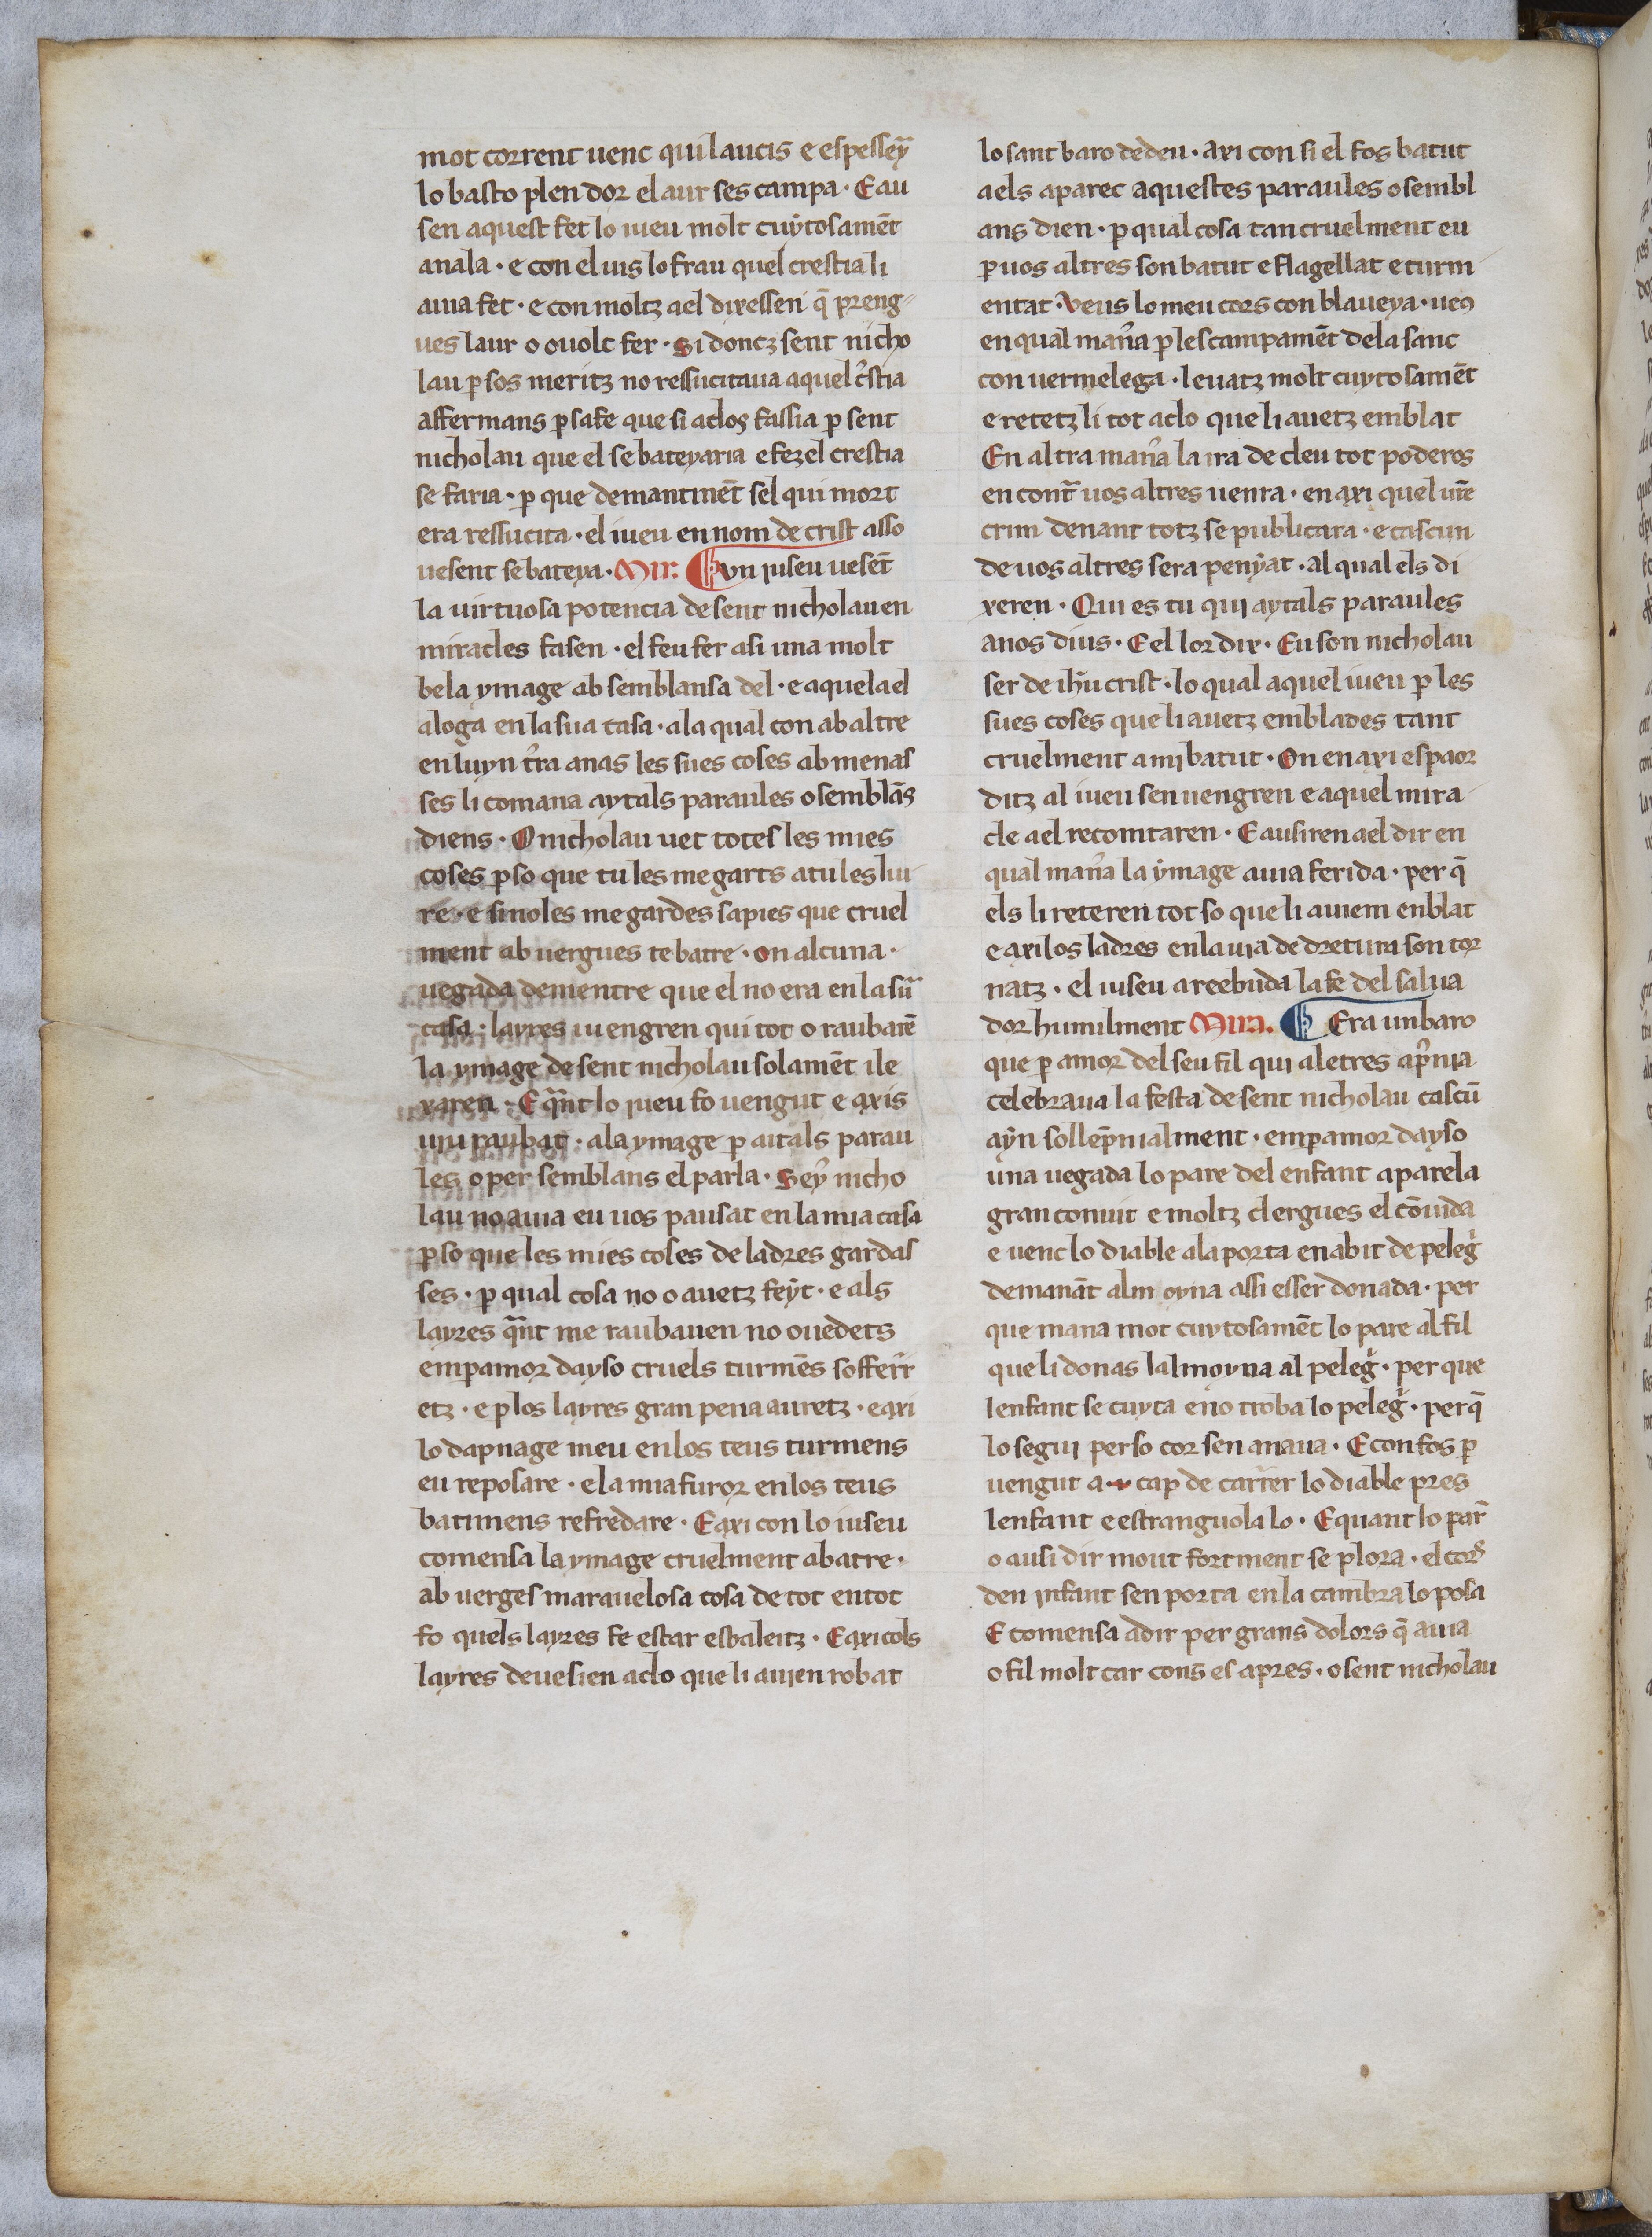 mot corrent uenc quilaucis e espessey
lo basto plen dor el aur ses campa · E au
sen aquest fet lo iueu molt cuytosamēt
anala · e con el uis lo frau quel crestia li
auia fet · e con moltz ael dixessen q̄ preng-
ues laur o ouolc fer · Si doncz sent nicho
lau ꝑ sos meritz no ressucitaua aquel c̓stia
affermans ꝑ sa fe que si acloz fassia ꝑ sent
nicholau que el se bateyaria e fez el crestia
se faria · ꝑ que demantinēt sel qui mort
era ressucita · el iueu en nom de crist asso
uesent se bateya · Mir: Un iuseu uesēt
la uirtuosa potencia de sent nicholau en
miracles fasen · el feu fer asi una molt
bela ymage ab semblansa del · e aquela el
aloga en la sua casa · ala qual con ab altre
en luyn t̓ra anas les sues coses ab menas
ses li comana aytals paraules o semblās
diens · O nicholau uet totes les mies
coses ꝑ so que tu les me garts atu les liu
re · e si noles me gardes sapies que cruel
ment ab uergues te batre · on alcuna ·
uegada dementre que el no era en la sua
casa · layres iuengren qui tot o raubarē
la ymage de sent nicholau solamēt ile
xaren · E qnt lo iueu fo uengut e axis
uiu raubat · ala ymage ꝑ aitals parau
les o per semblans el parla · Sey̓ nicho
lau no auia eu uos pausat en la mia casa
ꝑ so que les mies coses de ladres gardas
ses · ꝑ qual cosa no o auetz feyt · e als
layres qnt me raubauen no ouedets
emꝑamor dayso cruels turmēs sofferr
etz · e ꝑ los layres gran pena auretz · e axi
lo dapnage meu en los teus turmens
eu reposare · e la mia furor en los teus
batimens refredare · E axi con lo iuseu
comensa la ymage cruelment abatre ·
ab uerges marauelosa cosa de tot en tot
fo quels layres fe estar esbaleitz · E axi cols
layres deuesien aclo que li auien robat
lo sant baro de deu · axi con si el fos batut
aels aparec aquestes paraules o sembl
ans dien · ꝑ qual cosa tan cruelment eu
ꝑ uos altres son batut e flagellat e turm
entat · Veus lo meu cors con blaueya · ueus
en qual man̓a ꝑ lescampamēt dela sanc
con uermelega · leuatz molt cuytosamēt
e retetz li tot aclo que li auetz emblat
En altra man̓a la ira de deu tot poderos
en cont̄ uos altres uenra · en axi quel ur̄e
crim denant totz se publicara · e cascun
de uos altres sera penyat · al qual els di
xeren · Qui es tu qui aytals paraules
anos dius · E el lor dix · Eu son nicholau
ser de ih̄u crist · lo qual aquel iueu ꝑ les
sues coses que li auetz emblades tant
cruelment a mi batut · On en axi espaor
ditz al iueu sen uengren e aquel mira
cle ael recomtaren · E ausiren ael dir en
qual man̓a la ymage auia ferida · per q̄
els li reteren tot so que li auiem enblat
e axi los ladres en la uia de dretura son tor
natz · el iuseu a reebuda la fe del salua
dor humilment Mira. Era un baro
que ꝑ amor del seu fil qui aletres ap̓nia
celebraua la festa de sent nicholau cascū
ayn sollēpnialment · emꝑamor dayso
una uegada lo pare del enfant aparela
gran conuit e moltz clergues el cōuida
e uenc lo diable ala porta en abit de peleg̓
demanāt almoyna assi esser donada · per
que mana mot cuytosamēt lo pare al fil
que li donas lalmoyna al peleg̓ · per que
lenfant se cuyta e no troba lo peleg̓ · per q̄
lo segui per so cor sen anaua · E con fos ꝑ
uengut a cap de carrer lo diable pres
lenfant e estranguola lo · E quant lo par̄
o ausi dir mout fortment se plora · el cors
den infant sen porta en la cambra lo posa
E comensa adir per grans dolors q̄ auia
o fil molt car cons es apres · o sent nicholau